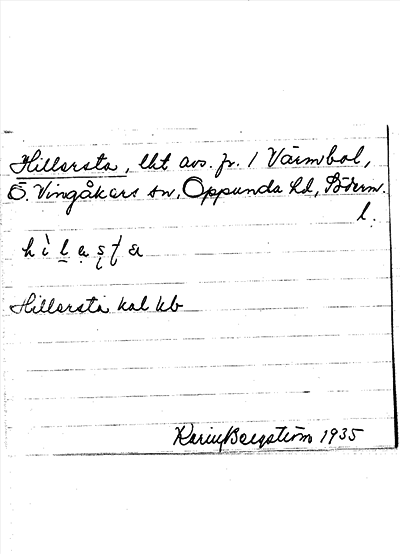 Hillersta, lht avs. fr. 1 Värmbol,
Ö. Vingåkers sn, Oppunda hd, Söderm.
l.
Hillersta kal kb
Karin Bergström 1935